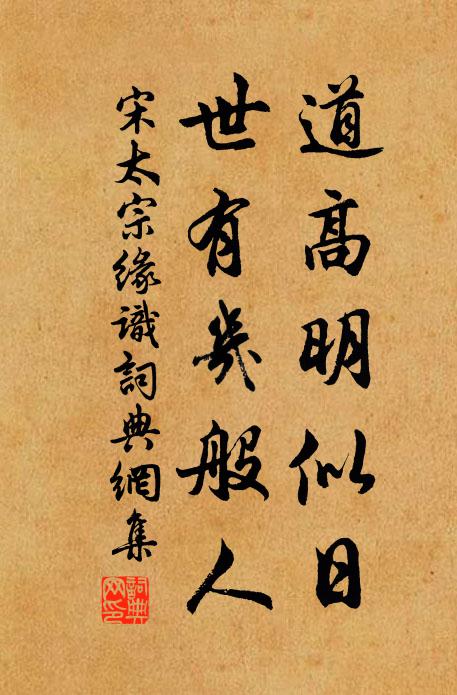 道高明似日
世有幾般人
宋太宗緣識詞典網集
詞典網印